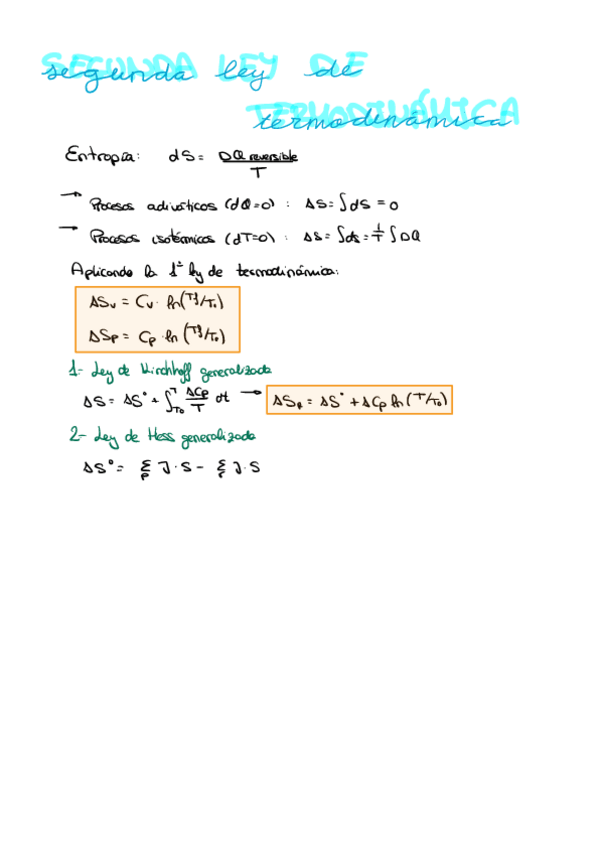 SEGUNDA LEY DE
segunda ley de
TERMODINÁMICA
termodinámica
Entropía: dS = DQ reversible / T
→ Procesos adiváticos (dQ=0) : ΔS = ∫dS = 0
→ Procesos isotérmicos (dT=0) : ΔS = ∫ds = 1/T ∫DQ
Aplicando la 1ª ley de termodinámica:
ΔSv = Cv · ln(Tf/T₀)
ΔSp = Cp · ln(Tf/T₀)
1- Ley de Kirchhoff generalizada
ΔS = ΔS° + ∫T₀^T ΔCp/T dt → ΔSR = ΔS° + ΔCp ln(T/T₀)
2- Ley de Hess generalizada
ΔS° = Σp J·S - Σr J·S